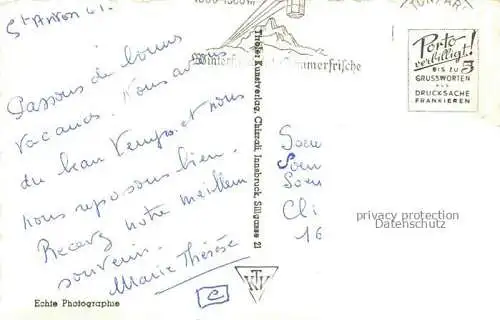 St Anton 41.
Passons de bonnes
vacances. Nous av
du beau temps et nous
nous reposons bien.
Recevez notre meilleur
souvenir.
Marie Thérèse
Echte Photographie
1800-1300m
Winter Sommerfrische
Tiroler Kunstverlag, Chizzali, Innsbruck, Sillgasse 21
Porto
verbilligt!
BIS ZU 5
GRUSSWORTEN
ALS
DRUCKSACHE
FRANKIEREN
Soeu
Soeu
Soeu
Cli
16
privacy protection
Datenschutz